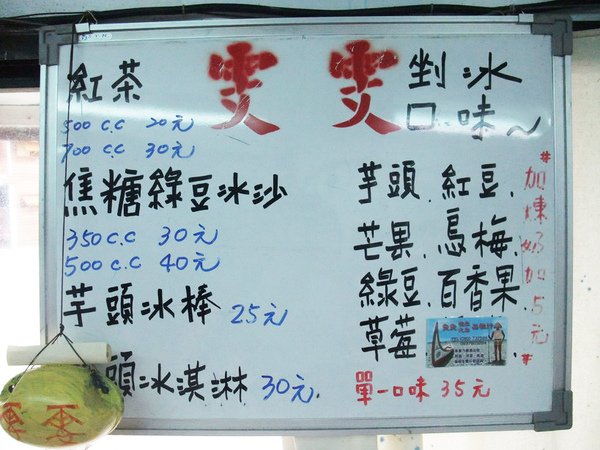 雯 雯
紅茶
500 c.c 20元
700 c.c 30元
焦糖綠豆冰沙
350 c.c 30元
500 c.c 40元
芋頭冰棒 25元
頭冰淇淋 30元.
剉冰
口味~
芋頭.紅豆.
芒果.烏梅.
綠豆.百香果.
草莓
單一口味 35元
#加煉奶加5元#
雯